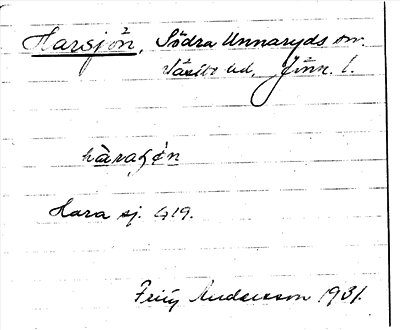 Harsjön, Södra Unnaryds sn.
Västbo hd, Jönk. l.
hàraʃø̀n
Hara sj. G19.
Fritz Andersson 1931.